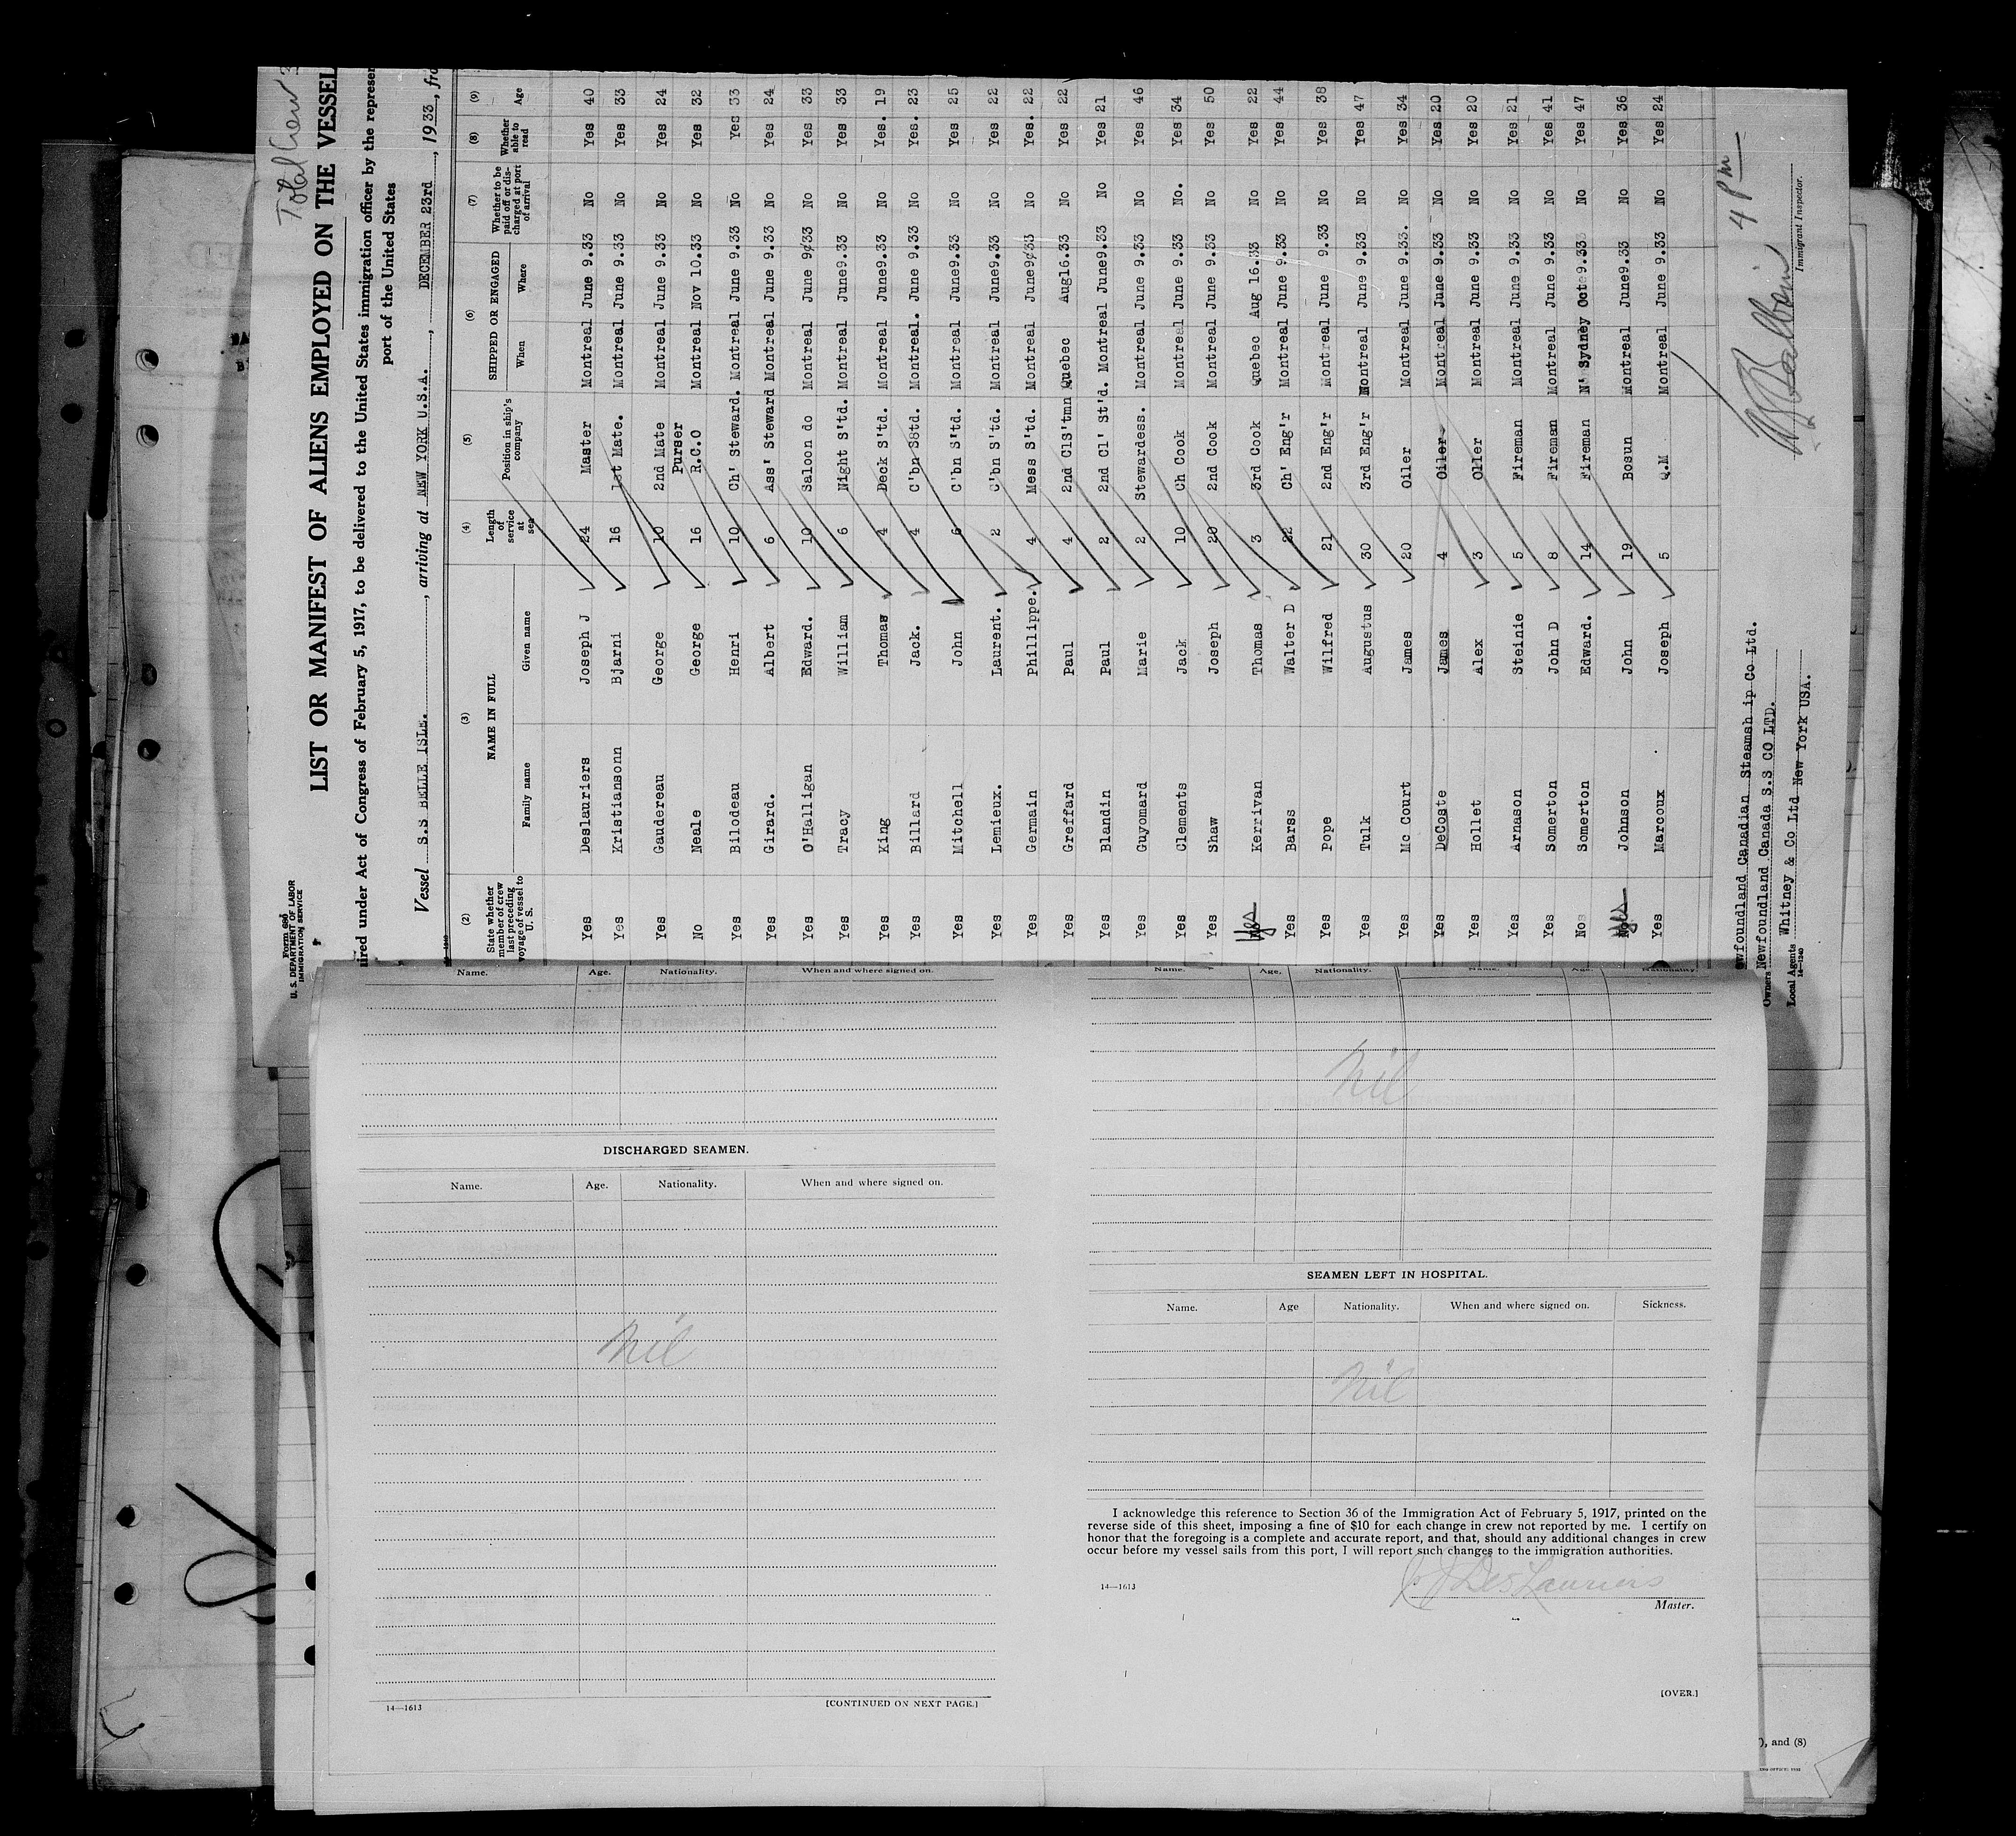 Total Crew
Form 680
U. S. DEPARTMENT OF LABOR
IMMIGRATION SERVICE
LIST OR MANIFEST OF ALIENS EMPLOYED ON THE VESSEL
ired under Act of Congress of February 5, 1917, to be delivered to the United States immigration officer by the represen
port of the United States
Vessel S.S BELLE ISLE. , arriving at NEW YORK U.S.A. , DECEMBER 23rd , 1933, fro
(2) (3) (4) (5) (6) (7) (8) (9)
State whether member of crew last preceding voyage of vessel to U. S. NAME IN FULL Length of service at sea Position in ship's company SHIPPED OR ENGAGED Whether to be paid off or discharged at port of arrival Whether able to read Age
Family name Given name When Where
Yes Deslauriers Joseph J 24 Master Montreal June 9.33 No Yes 40
Yes Kristiansonn Bjarni 16 1st Mate. Montreal June 9.33 No Yes 33
Yes Gaudereau George 10 2nd Mate Montreal June 9.33 No Yes 24
No Neale George 16 Purser R.C.O Montreal Nov 10.33 No Yes 32
Yes Bilodeau Henri 10 Ch' Steward. Montreal June 9.33 No Yes 33
Yes Girard. Albert 6 Ass' Steward Montreal June 9.33 No Yes 24
Yes O'Halligan Edward. 10 Saloon do Montreal June 9/33 No Yes 33
Yes Tracy William 6 Night S'td. Montreal June9.33 No Yes 33
Yes King Thomas 4 Deck S'td. Montreal June9.33 No Yes. 19
Yes Billard Jack. 4 C'bn S8td. Montreal. June 9.33 No Yes. 23
Yes Mitchell John 6 C'bn S'td. Montreal June9.33 No Yes 25
Yes Lemieux. Laurent. 2 C'bn S'td. Montreal June9.33 No Yes 22
Yes Germain Phillippe. 4 Mess S'td. Montreal June9/33 No Yes. 22
Yes Greffard Paul 4 2nd ClS'tmn Quebec Aug16.33 No Yes 22
Yes Blandin Paul 2 2nd Cl' St'd. Montreal June9.33 No Yes 21
Yes Guyomard Marie 2 Stewardess. Montreal June 9.33 No Yes 46
Yes Clements Jack 10 Ch Cook Montreal June 9.33 No. Yes 34
Yes Shaw Joseph 20 2nd Cook Montreal June 9.33 No Yes 50
Yes Kerrivan Thomas 3 3rd Cook Quebec Aug 16.33 No Yes 22
Yes Barss Walter D 22 Ch' Eng'r Montreal June 9.33 No Yes 44
Yes Pope Wilfred 21 2nd Eng'r Montreal June 9.33 No Yes 38
Yes Tulk Augustus 30 3rd Eng'r Montreal June 9.33 No Yes 47
Yes Mc Court James 20 Oiler Montreal June 9.33. No Yes 34
Yes DeCoste James 4 Oiler Montreal June 9.33 No Yes 20
Yes Hollet Alex 3 Oiler Montreal June 9.33 No Yes 20
Yes Arnason Steinie 5 Fireman Montreal June 9.33 No Yes 21
Yes Somerton John D 8 Fireman Montreal June 9.33 No Yes 41
No Somerton Edward. 14 Fireman N' Sydney Oct 9.33 No Yes 47
Yes Johnson John 19 Bosun Montreal June9.33 No Yes 36
Yes Marcoux Joseph 5 Q.M Montreal June 9.33 No Yes 24
4 Pm
Immigrant Inspector.
ewfoundland Canadian Steamsh ip Co Ltd.
Owners Newfoundland Canada S.S CO LTD.
Local Agents Whitney & Co Ltd New York USA.
14—1240
Name. Age. Nationality. When and where signed on.
DISCHARGED SEAMEN.
Name. Age. Nationality. When and where signed on.
Nil
14—1613 [CONTINUED ON NEXT PAGE.]
Name. Age. Nationality. Name. Age. Nationality.
Nil
SEAMEN LEFT IN HOSPITAL.
Name. Age Nationality. When and where signed on. Sickness.
Nil
I acknowledge this reference to Section 36 of the Immigration Act of February 5, 1917, printed on the
reverse side of this sheet, imposing a fine of $10 for each change in crew not reported by me. I certify on
honor that the foregoing is a complete and accurate report, and that, should any additional changes in crew
occur before my vessel sails from this port, I will report such changes to the immigration authorities.
14—1613
J J DesLauriers
Master.
[OVER.]
), and (8)